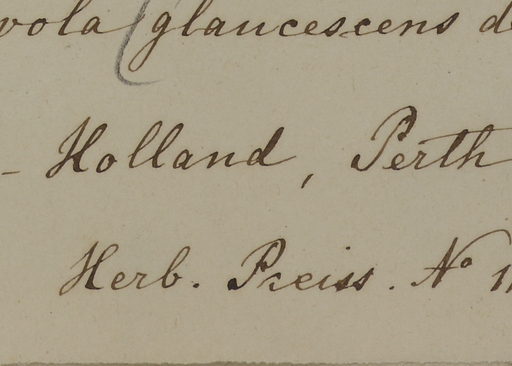 vola (glaucescens d
- Holland, Perth
Herb. Preiss. No 1